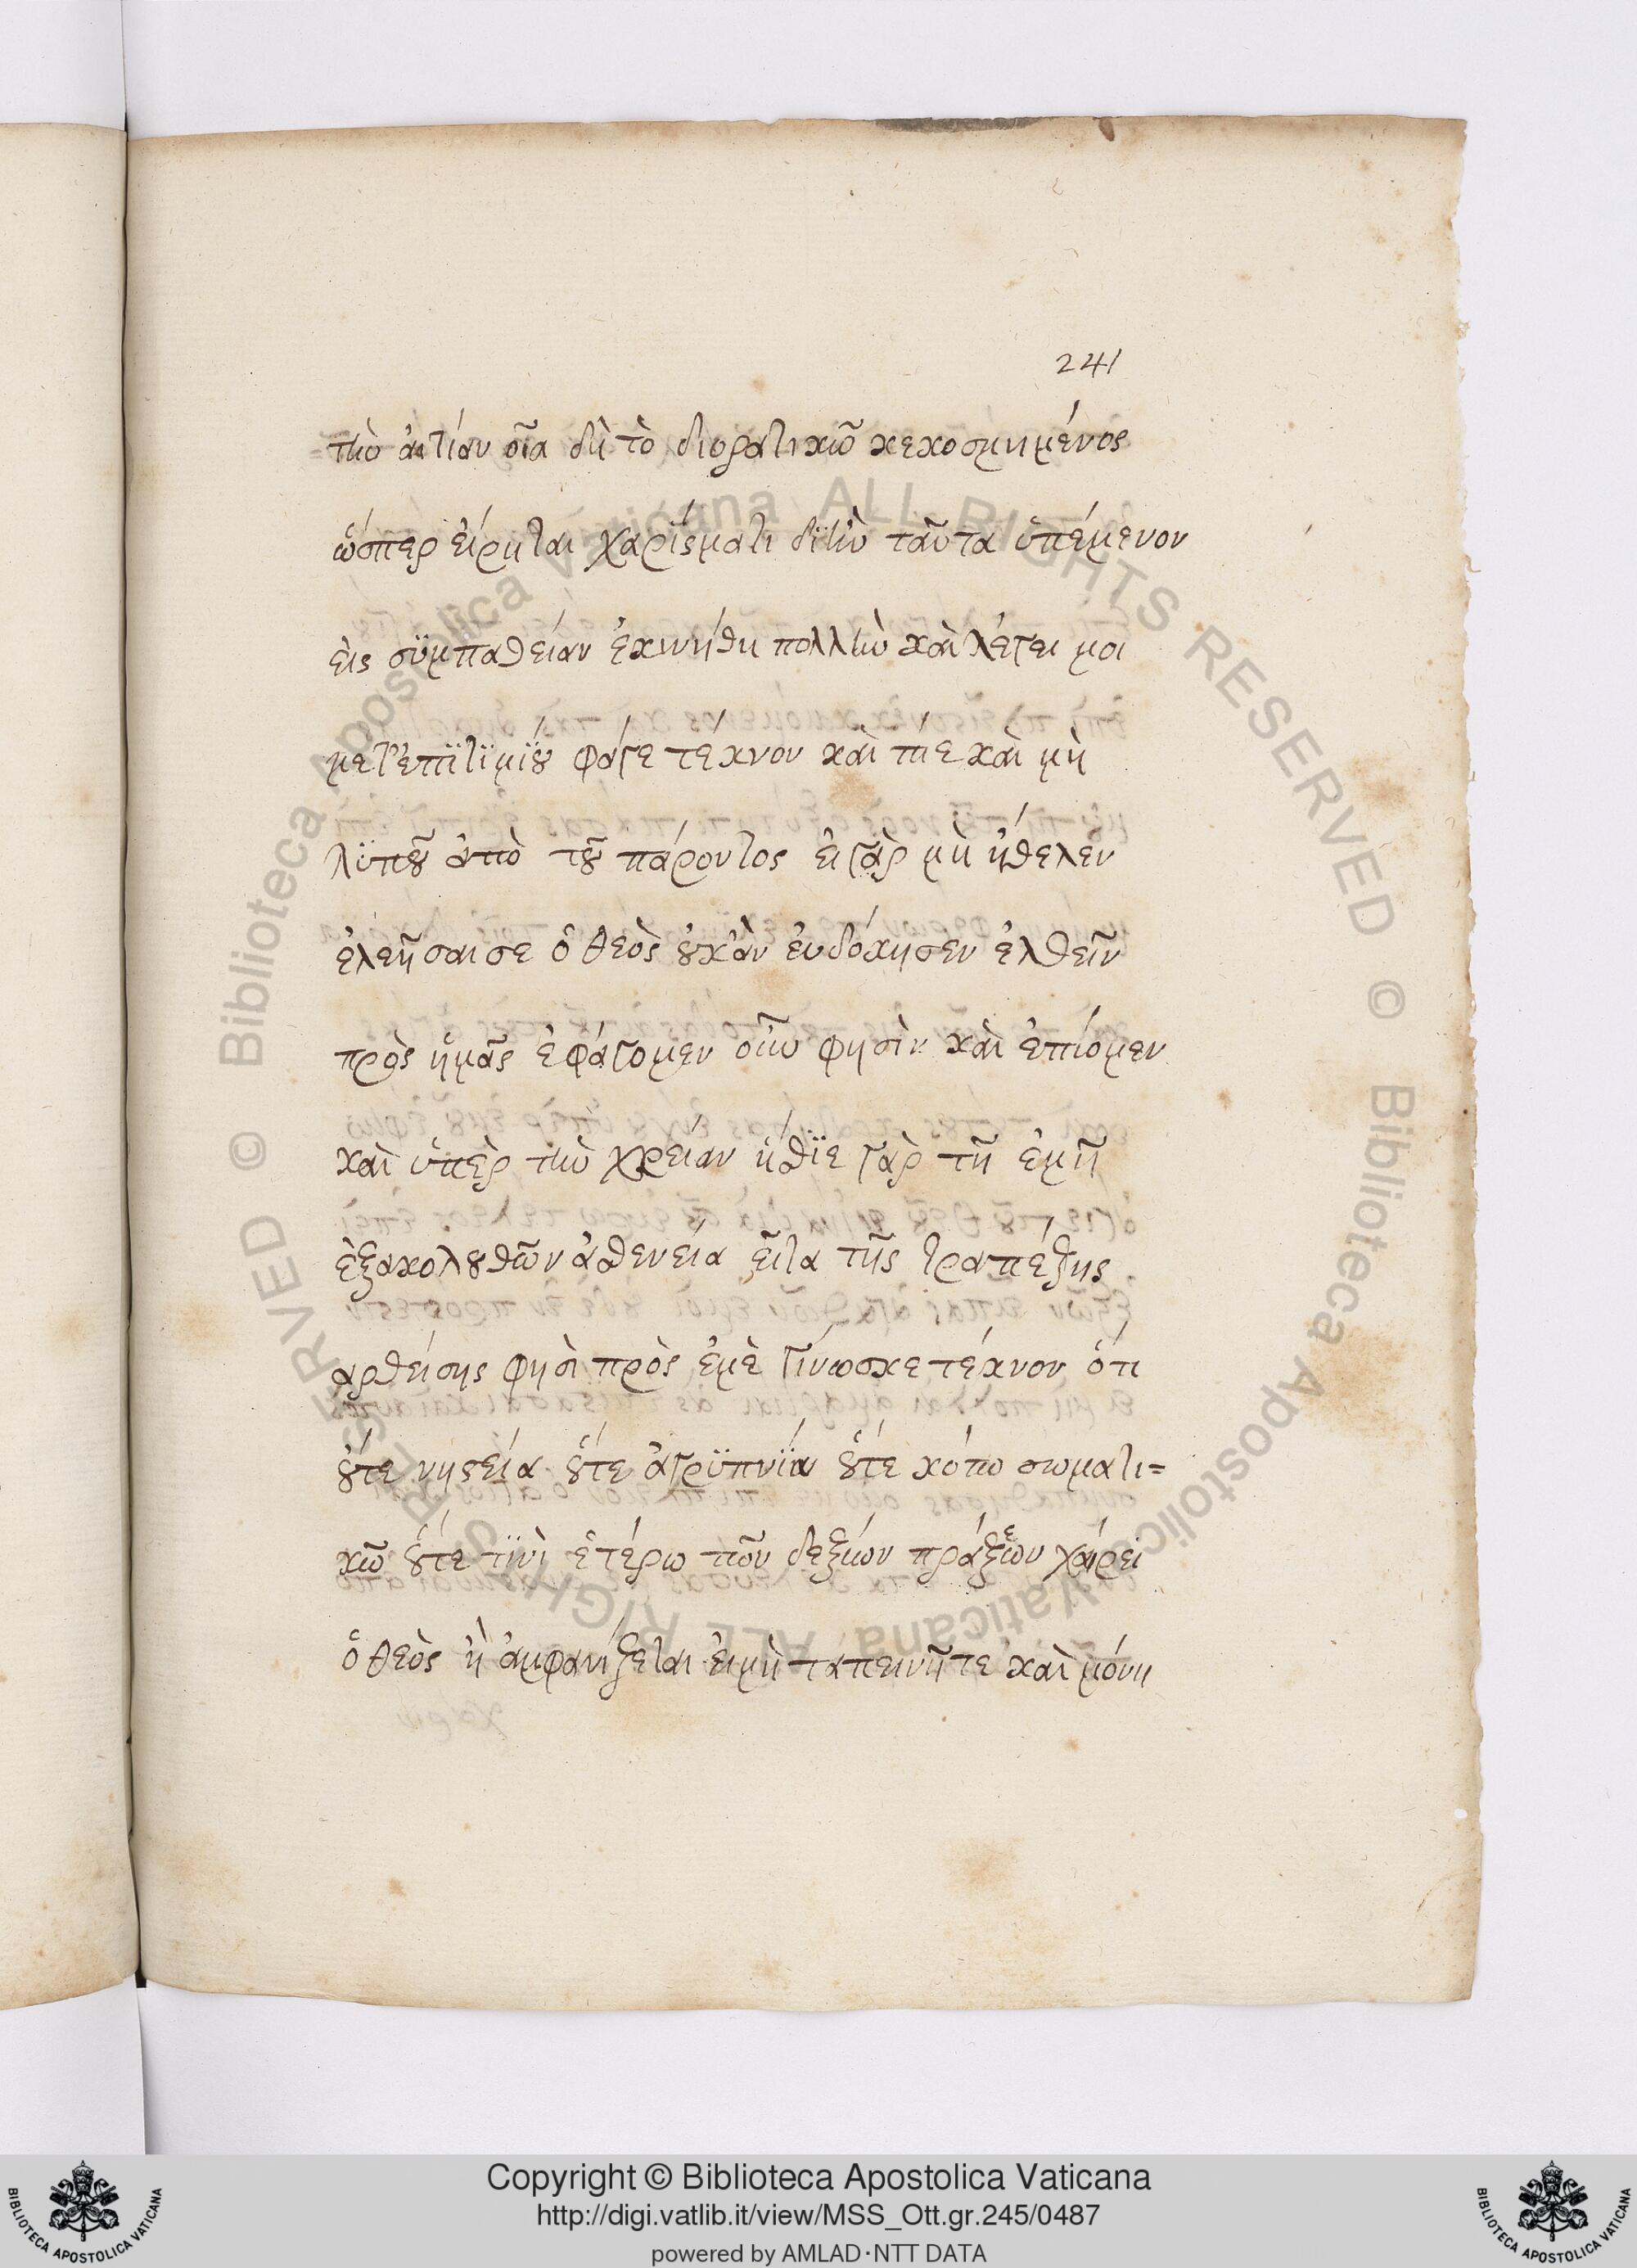 241
τὴν ἀιτίαν οἷα δὴ τὸ διορατικῶ κεκοσμημένος
ὥσπερ εἴρηται χαρίσματι δϊ' ἣν ταῦτα ὑπέμενον
εἰς σϋμπαθείαν ἐκινήθη πολλὴν καὶ λέγει μοι
μετ' ἐπϊτϊμίου φάγε τέκνον καὶ πίε καὶ μὴ
λϋποῦ ἀπὸ τοῦ πάροντος εἰ γὰρ μὴ ἤθελεν
ἐλεῆσαι σε ὁ θεὸς οὐκ ἂν ἐυδόκησεν ἐλθεῖν
πρὸς ἡμᾶς ἐφάγομεν οὖν φησὶν καὶ ἐπίομεν
καὶ ὑπὲρ τὴν χρείαν ἤσθϊε γὰρ τῆ ἐμῆ
ἐξακολουθῶν ἀσθενεία εἶτα τῆς τραπέζης
ἀρθείσης φησὶ πρὸς ἐμὲ γίνωσκε τέκνον ὅτι
οὔτε νηστεία οὔτε ἀγρϋπνϊα οὔτε κόπω σωματι=
κῶ οὔτε τϊνὶ ἑτέρω τῶν δεξιῶν πράξεων χαίρει
ὁ θεὸς ἢ ἐμφανίζεται εἰ μὴ ταπεινῆ τε καὶ μόνη
Copyright © Biblioteca Apostolica Vaticana
http://digi.vatlib.it/view/MSS_Ott.gr.245/0487
powered by AMLAD·NTT DATA